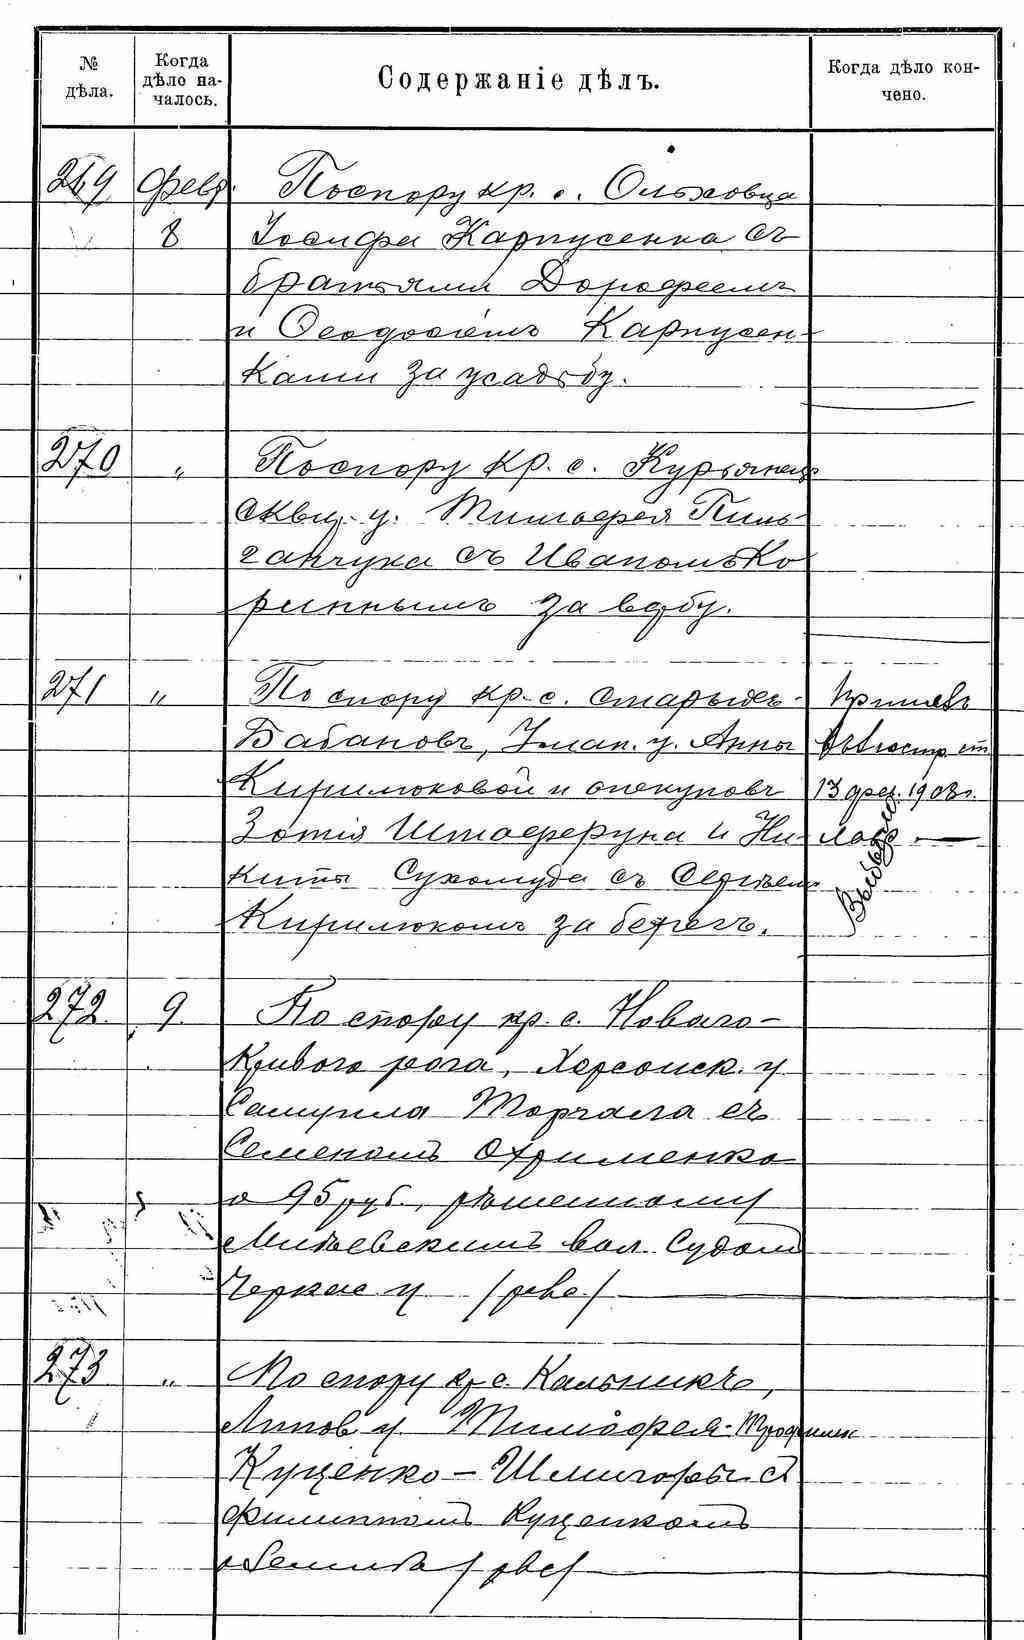 № дѣла.
Когда дѣло началось.
Содержаніе дѣлъ.
Когда дѣло кончено.
269 Февр. По спору кр. с. Ольховца
8 Іосифа Карпусенка съ
братьями Дорофеемъ
и Ѳеодосіемъ Карпусен-
ками за усадьбу.
270 „ По спору кр. с. Курьянецъ
Сквир. у. Тимофея Пиль-
ганчука съ Иваномъ Ко
риннымъ за
271 „ По спору кр. с. Старыхъ-
Бабановъ, Уман. у. Анны
Кирилюковой и опекуновъ
13 фев. 1908 г.
Зотія Штоферука и Ни-
киты Сухомуда съ Сергѣемъ
Кирилюкомъ за берегъ.
272. 9. По спору кр. с. Новаго-
Кривого рога, Херсонск. у.
Самуила Торчала съ
Семеномъ Охрименко
о 95 руб., рѣшенному
Митьевскимъ вол. Судомъ
Черкас. у /рвс/
273 „ По спору кр. с. Кальникъ,
Липов. у. Тимофея-Трофима
Куценко-Шмигоры съ
Филиппомъ Куценкомъ
о землѣ /рвс/